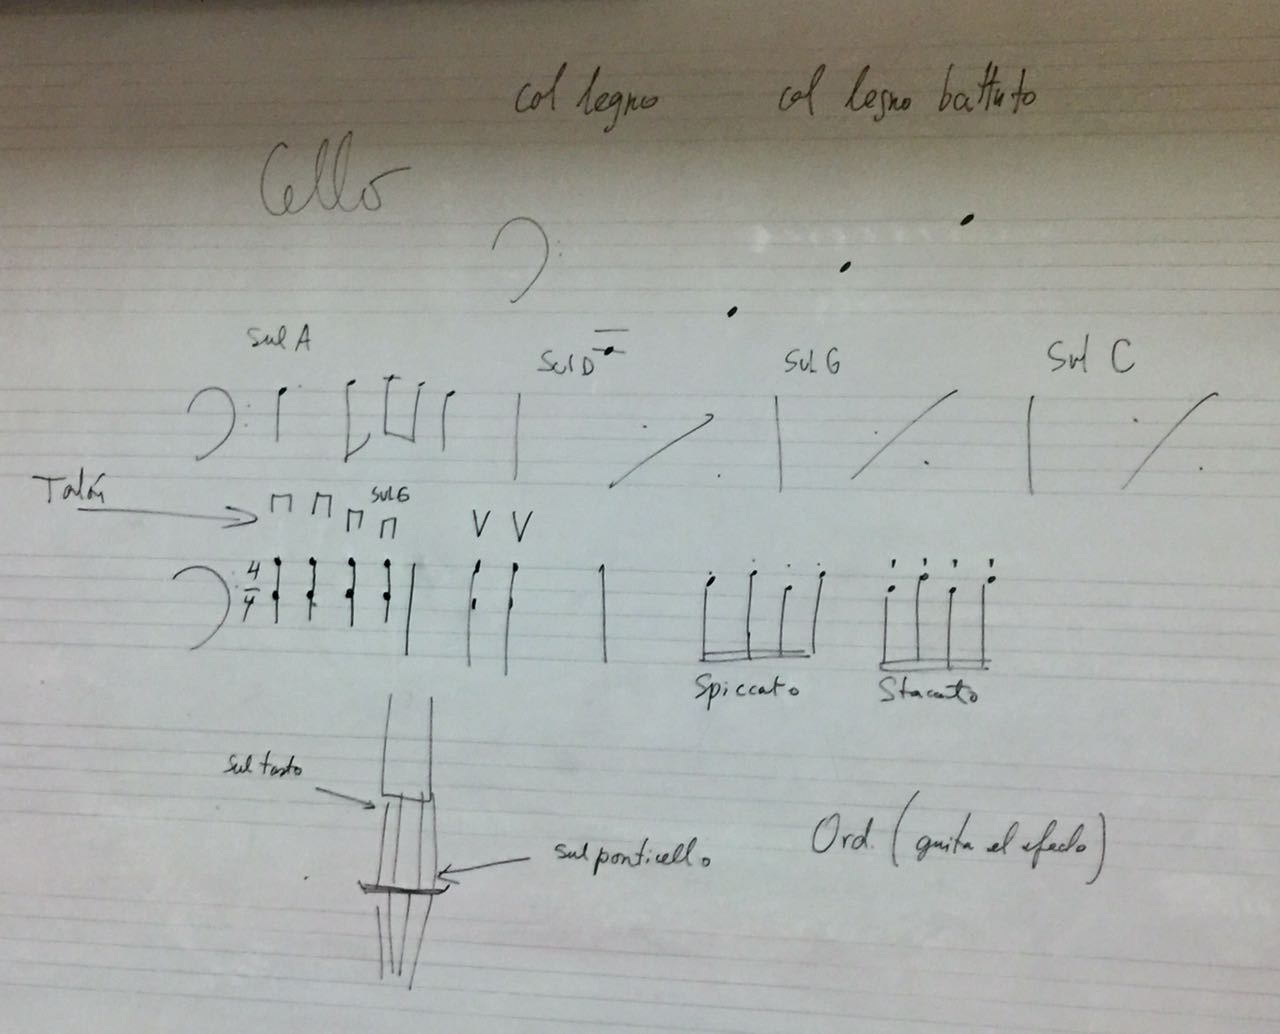 col legno col legno battuto
Cello
Sul A Sul D Sul G Sul C
Talón Sul G
V V
4/4
Spiccato Staccato
Sul tasto
Sul ponticello Ord. (quita el efecto)